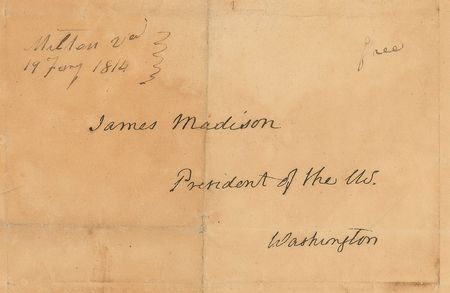 Milton Va
19 Jany 1814
free
James Madison
President of the U.S.
Washington